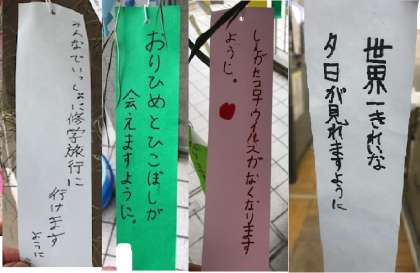 みんなでいっしょに修学旅行に
行けます
ように
おりひめとひこぼしが
会えますように。
しんがたコロナウイルスがなくなります
ように。
世界一きれいな
夕日が見れますように